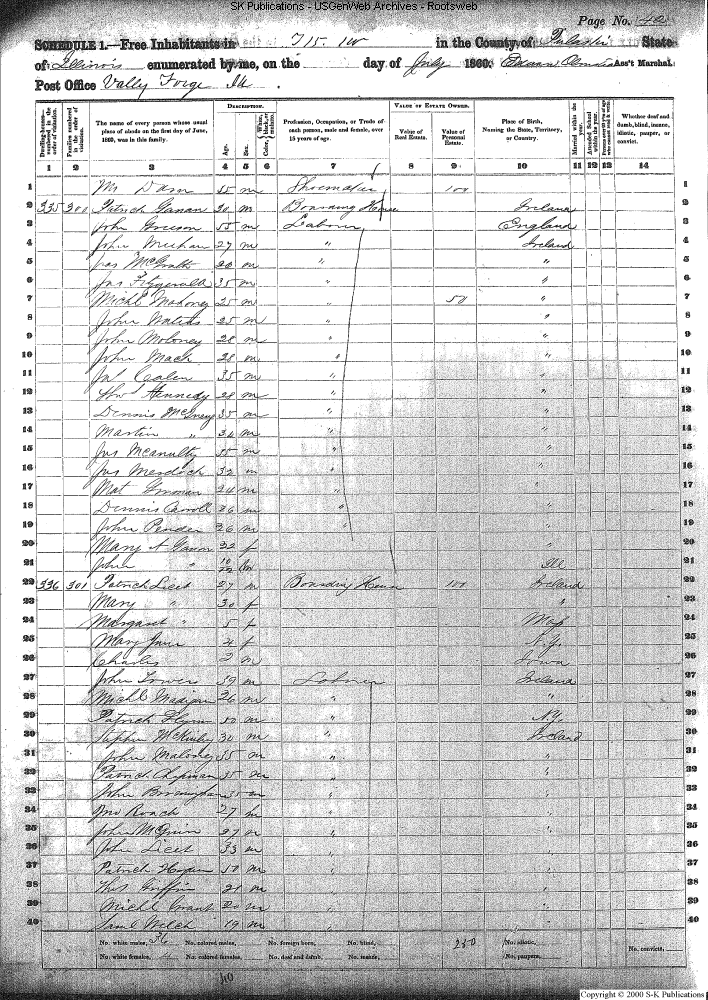 SK Publications - USGenWeb Archives - Rootsweb
Page No.
SCHEDULE 1.—Free Inhabitants in T15. 1W in the County of Pulaski State
of Illinois enumerated by me, on the day of July 1860. Ass't Marshal.
Post Office Vally Forge Ills.
Dwelling-houses—numbered in the order of visitation.
Families numbered in the order of visitation.
The name of every person whose usual place of abode on the first day of June, 1860, was in this family.
DESCRIPTION.
Age.
Sex.
Color, { White, black, or mulatto.
Profession, Occupation, or Trade of each person, male and female, over 15 years of age.
VALUE OF ESTATE OWNED.
Value of Real Estate.
Value of Personal Estate.
Place of Birth, Naming the State, Territory, or Country.
Married within the year.
Attended School within the year.
Whether deaf and dumb, blind, insane, idiotic, pauper, or convict.
1 2 3 4 5 6 7 8 9 10 11 12 13 14
1 Wm 55 m Shoemaker 100 1
2 335 300 Patrick Ganan 30 m Boarding House Ireland 2
3 John 55 m Labour England 3
4 John Meehan 27 m " Ireland 4
5 Jas McGrath 20 m " " 5
6 Jas Fitzgerald 35 m " " 6
7 Michl Mahoney 25 m " 50 " 7
8 John 25 m " " 8
9 John Moloney 28 m " " 9
10 John Mack 28 m " " 10
11 35 m " " 11
12 Kennedy 28 m " " 12
13 Dennis 35 m " " 13
14 Martin " 34 m " " 14
15 Jas Mcanulty 35 m " " 15
16 Jas Merdock 32 m " " 16
17 Mat Gorman 24 m " " 17
18 Dennis Carroll 26 m " " 18
19 John Pender 26 m " " 19
20 Mary A Ganan 22 f " 20
21 John " 10/12 m Ill 21
22 336 301 Patrick Liest 27 m Boarding House 100 Ireland 22
23 Mary " 30 f " 23
24 Margaret " 5 f Mass 24
25 Mary Jane 4 f N.Y. 25
26 Charles 2 m Iowa 26
27 John Tower 39 m Labour Ireland 27
28 Michl Madigan 26 m " " 28
29 Patrick Flynn 50 m " N.Y. 29
30 Stephen McKinley 30 m " Ireland 30
31 John Maloney 35 m " " 31
32 Patrick Chapman 35 m " " 32
33 John Birmingham 35 m " " 33
34 Jno Roach 27 m " " 34
35 John McGuin 27 m " " 35
36 John Liest 33 m " " 36
37 Patrick Hogan 50 m " " 37
38 Griffin 21 m " " 38
39 Michl Grant 20 m " " 39
40 Saml Welch 19 m " " 40
No. white males, 36 No. colored males, No. foreign born, No. blind, 250 No. idiotic, No. convicts,
No. white females, 4 No. colored females, No. deaf and dumb, No. insane, No. paupers,
40
Copyright © 2000 S-K Publications